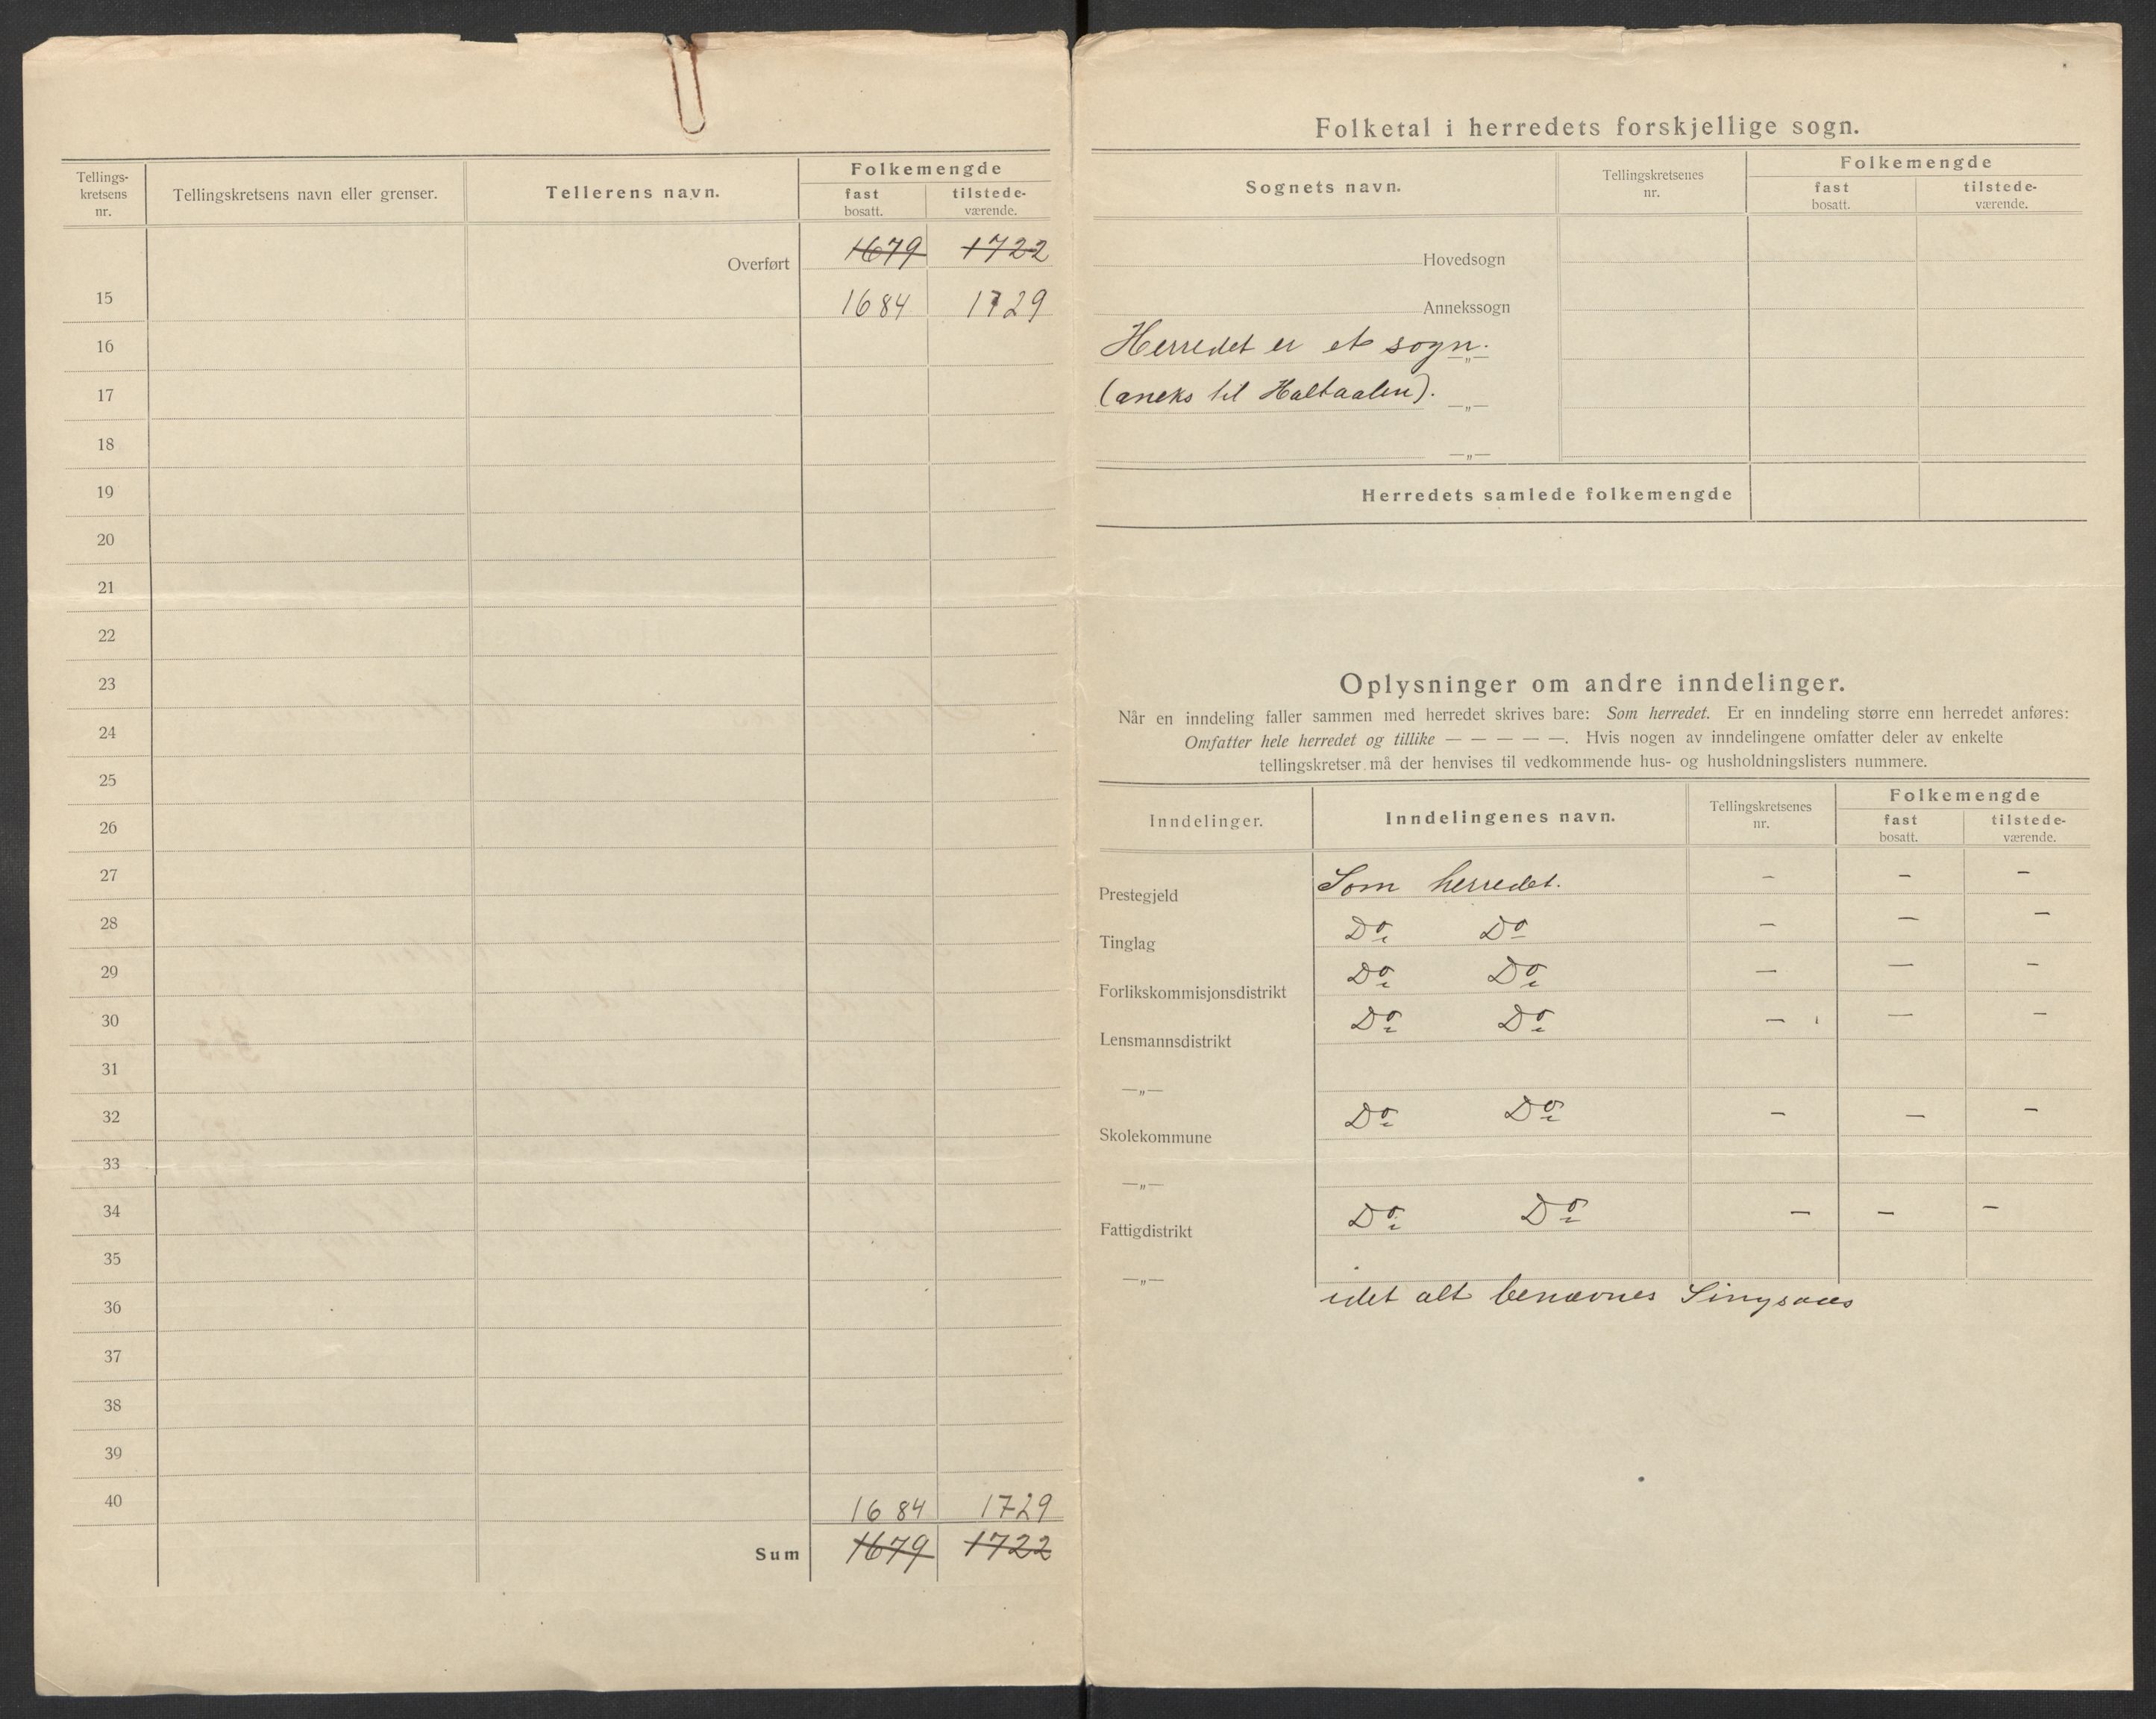 Tellings-
kretsens
nr.
Tellingskretsens navn eller grenser.
Tellerens navn.
Folkemengde
fast
bosatt.
tilstede-
værende.
Overført 1679 1722
15 1684 1729
16
17
18
19
20
21
22
23
24
25
26
27
28
29
30
31
32
33
34
35
36
37
38
39
40 1684 1729
Sum 1679 1722
Folketal i herredets forskjellige sogn.
Sognets navn.
Tellingskretsenes
nr.
Folkemengde
fast
bosatt.
tilstede-
værende.
Hovedsogn
Annekssogn
Herredet er et sogn. —„—
(aneks til Haltaalen). —„—
—„—
Herredets samlede folkemengde
Oplysninger om andre inndelinger.
Når en inndeling faller sammen med herredet skrives bare: Som herredet. Er en inndeling større enn herredet anføres:
Omfatter hele herredet og tillike — — — — —. Hvis nogen av inndelingene omfatter deler av enkelte
tellingskretser må der henvises til vedkommende hus- og husholdningslisters nummere.
Inndelinger.
Inndelingenes navn.
Tellingskretsenes
nr.
Folkemengde
fast
bosatt.
tilstede-
værende.
Prestegjeld Som herredet. — — —
Tinglag Do Do — — —
Forlikskommisjonsdistrikt Do Do — — —
Lensmannsdistrikt Do Do — — —
—„—
Skolekommune Do Do — — —
—„—
Fattigdistrikt Do Do — — —
—„—
idet alt benævnes Singsaas